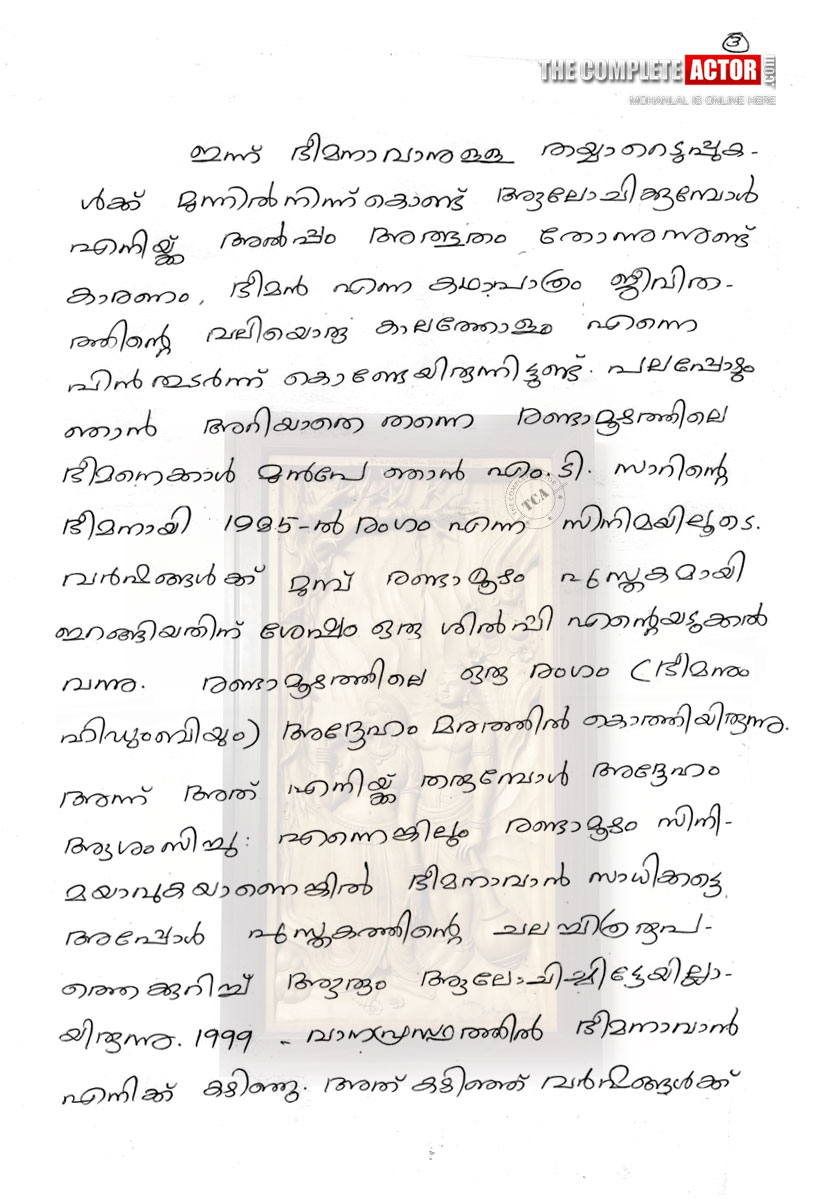 3
THE COMPLETE ACTOR .COM
MOHANLAL IS ONLINE HERE
ഇന്ന് ഭീമനാവാനുള്ള തയ്യാറെടുപ്പുക-
ൾക്ക് മുന്നിൽ നിന്ന് കൊണ്ട് ആലോചിക്കുമ്പോൾ
എനിയ്ക്ക് അൽപ്പം അത്ഭുതം തോന്നുന്നുണ്ട്
കാരണം, ഭീമൻ എന്ന കഥാപാത്രം ജീവിത-
ത്തിന്റെ വലിയൊരു കാലത്തോളം എന്നെ
പിൻതുടർന്ന് കൊണ്ടേയിരുന്നിട്ടുണ്ട്. പലപ്പോഴും
ഞാൻ അറിയാതെ തന്നെ രണ്ടാമൂഴത്തിലെ
ഭീമനെക്കാൾ മുൻപേ ഞാൻ എം.ടി. സാറിന്റെ
ഭീമനായി 1985-ൽ രംഗം എന്ന സിനിമയിലൂടെ.
വർഷങ്ങൾക്ക് മുമ്പ് രണ്ടാമൂഴം പുസ്തകമായി
ഇറങ്ങിയതിന് ശേഷം ഒരു ശിൽപ്പി എന്റെയടുക്കൽ
വന്നു. രണ്ടാമൂഴത്തിലെ ഒരു രംഗം (ഭീമനും
ഹിഡുംബിയും) അദ്ദേഹം മരത്തിൽ കൊത്തിയിരുന്നു.
അന്ന് അത് എനിയ്ക്ക് തരുമ്പോൾ അദ്ദേഹം
ആശംസിച്ചു: എന്നെങ്കിലും രണ്ടാമൂഴം സിനി-
മയാവുകയാണെങ്കിൽ ഭീമനാവാൻ സാധിക്കട്ടെ
അപ്പോൾ പുസ്തകത്തിന്റെ ചലച്ചിത്രരൂപ-
ത്തെക്കുറിച്ച് ആരും ആലോചിച്ചിട്ടേയില്ലാ-
യിരുന്നു. 1999 - വാനപ്രസ്ഥത്തിൽ ഭീമനാവാൻ
എനിക്ക് കഴിഞ്ഞു. അത് കഴിഞ്ഞ് വർഷങ്ങൾക്ക്
TCA